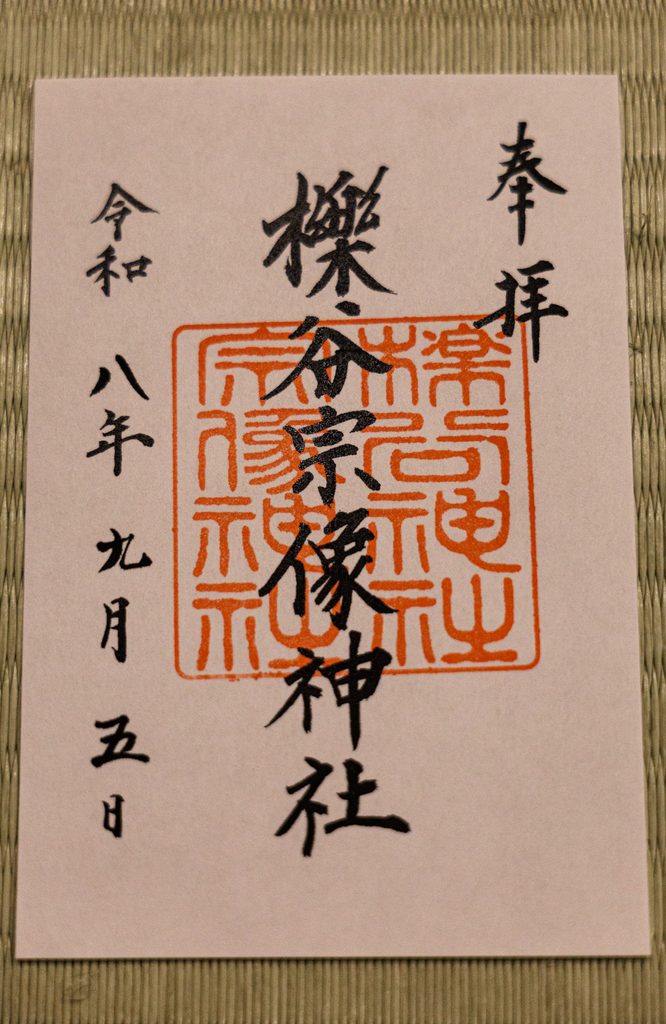 奉拝
櫟谷宗像神社
櫟谷神社
宗像神社
令和八年九月五日